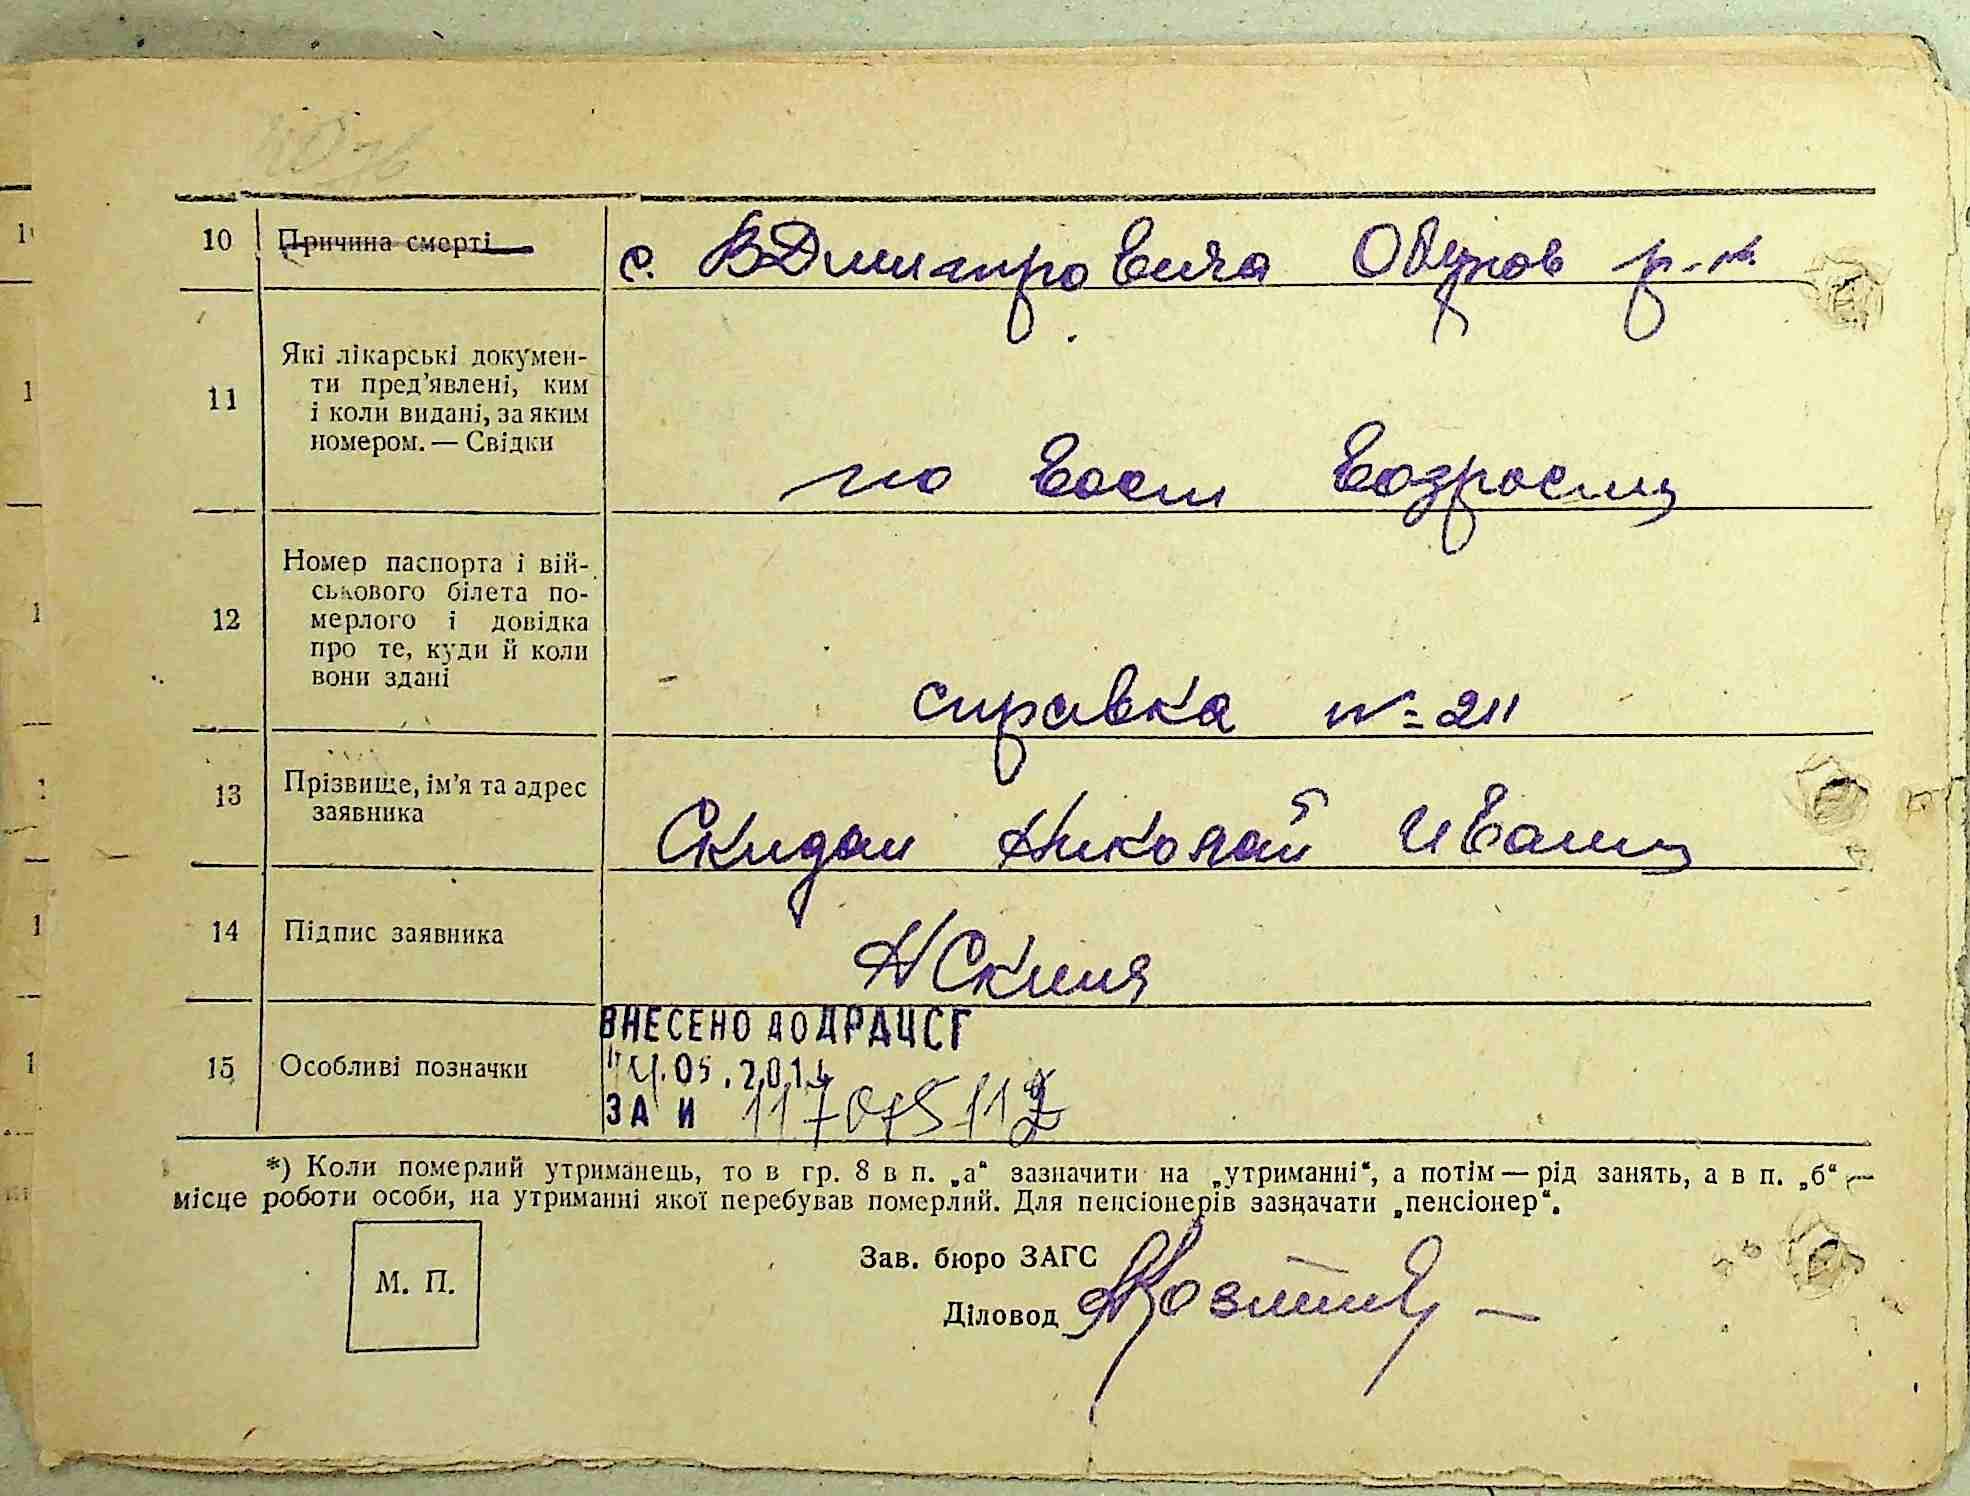 10 Причина смерті с. ВДмитровича Обухов р-н.
11 Які лікарські докумен-
ти пред'явлені, ким
і коли видані, за яким
номером. — Свідки
по восст возрасту
12 Номер паспорта і вій-
ськового білета по-
мерлого і довідка
про те, куди й коли
вони здані
справка №=211
13 Прізвище, ім'я та адрес
заявника
Скидан Николай Иванц
14 Підпис заявника
15 Особливі позначки
ВНЕСЕНО ДО ДРАЦСГ
.05.201
ЗА И
*) Коли померлий утриманець, то в гр. 8 в п. „а“ зазначити на „утриманні“, а потім — рід занять, а в п. „б“ —
місце роботи особи, на утриманні якої перебував померлий. Для пенсіонерів зазначати „пенсіонер“.
М. П.
Зав. бюро ЗАГС
Діловод